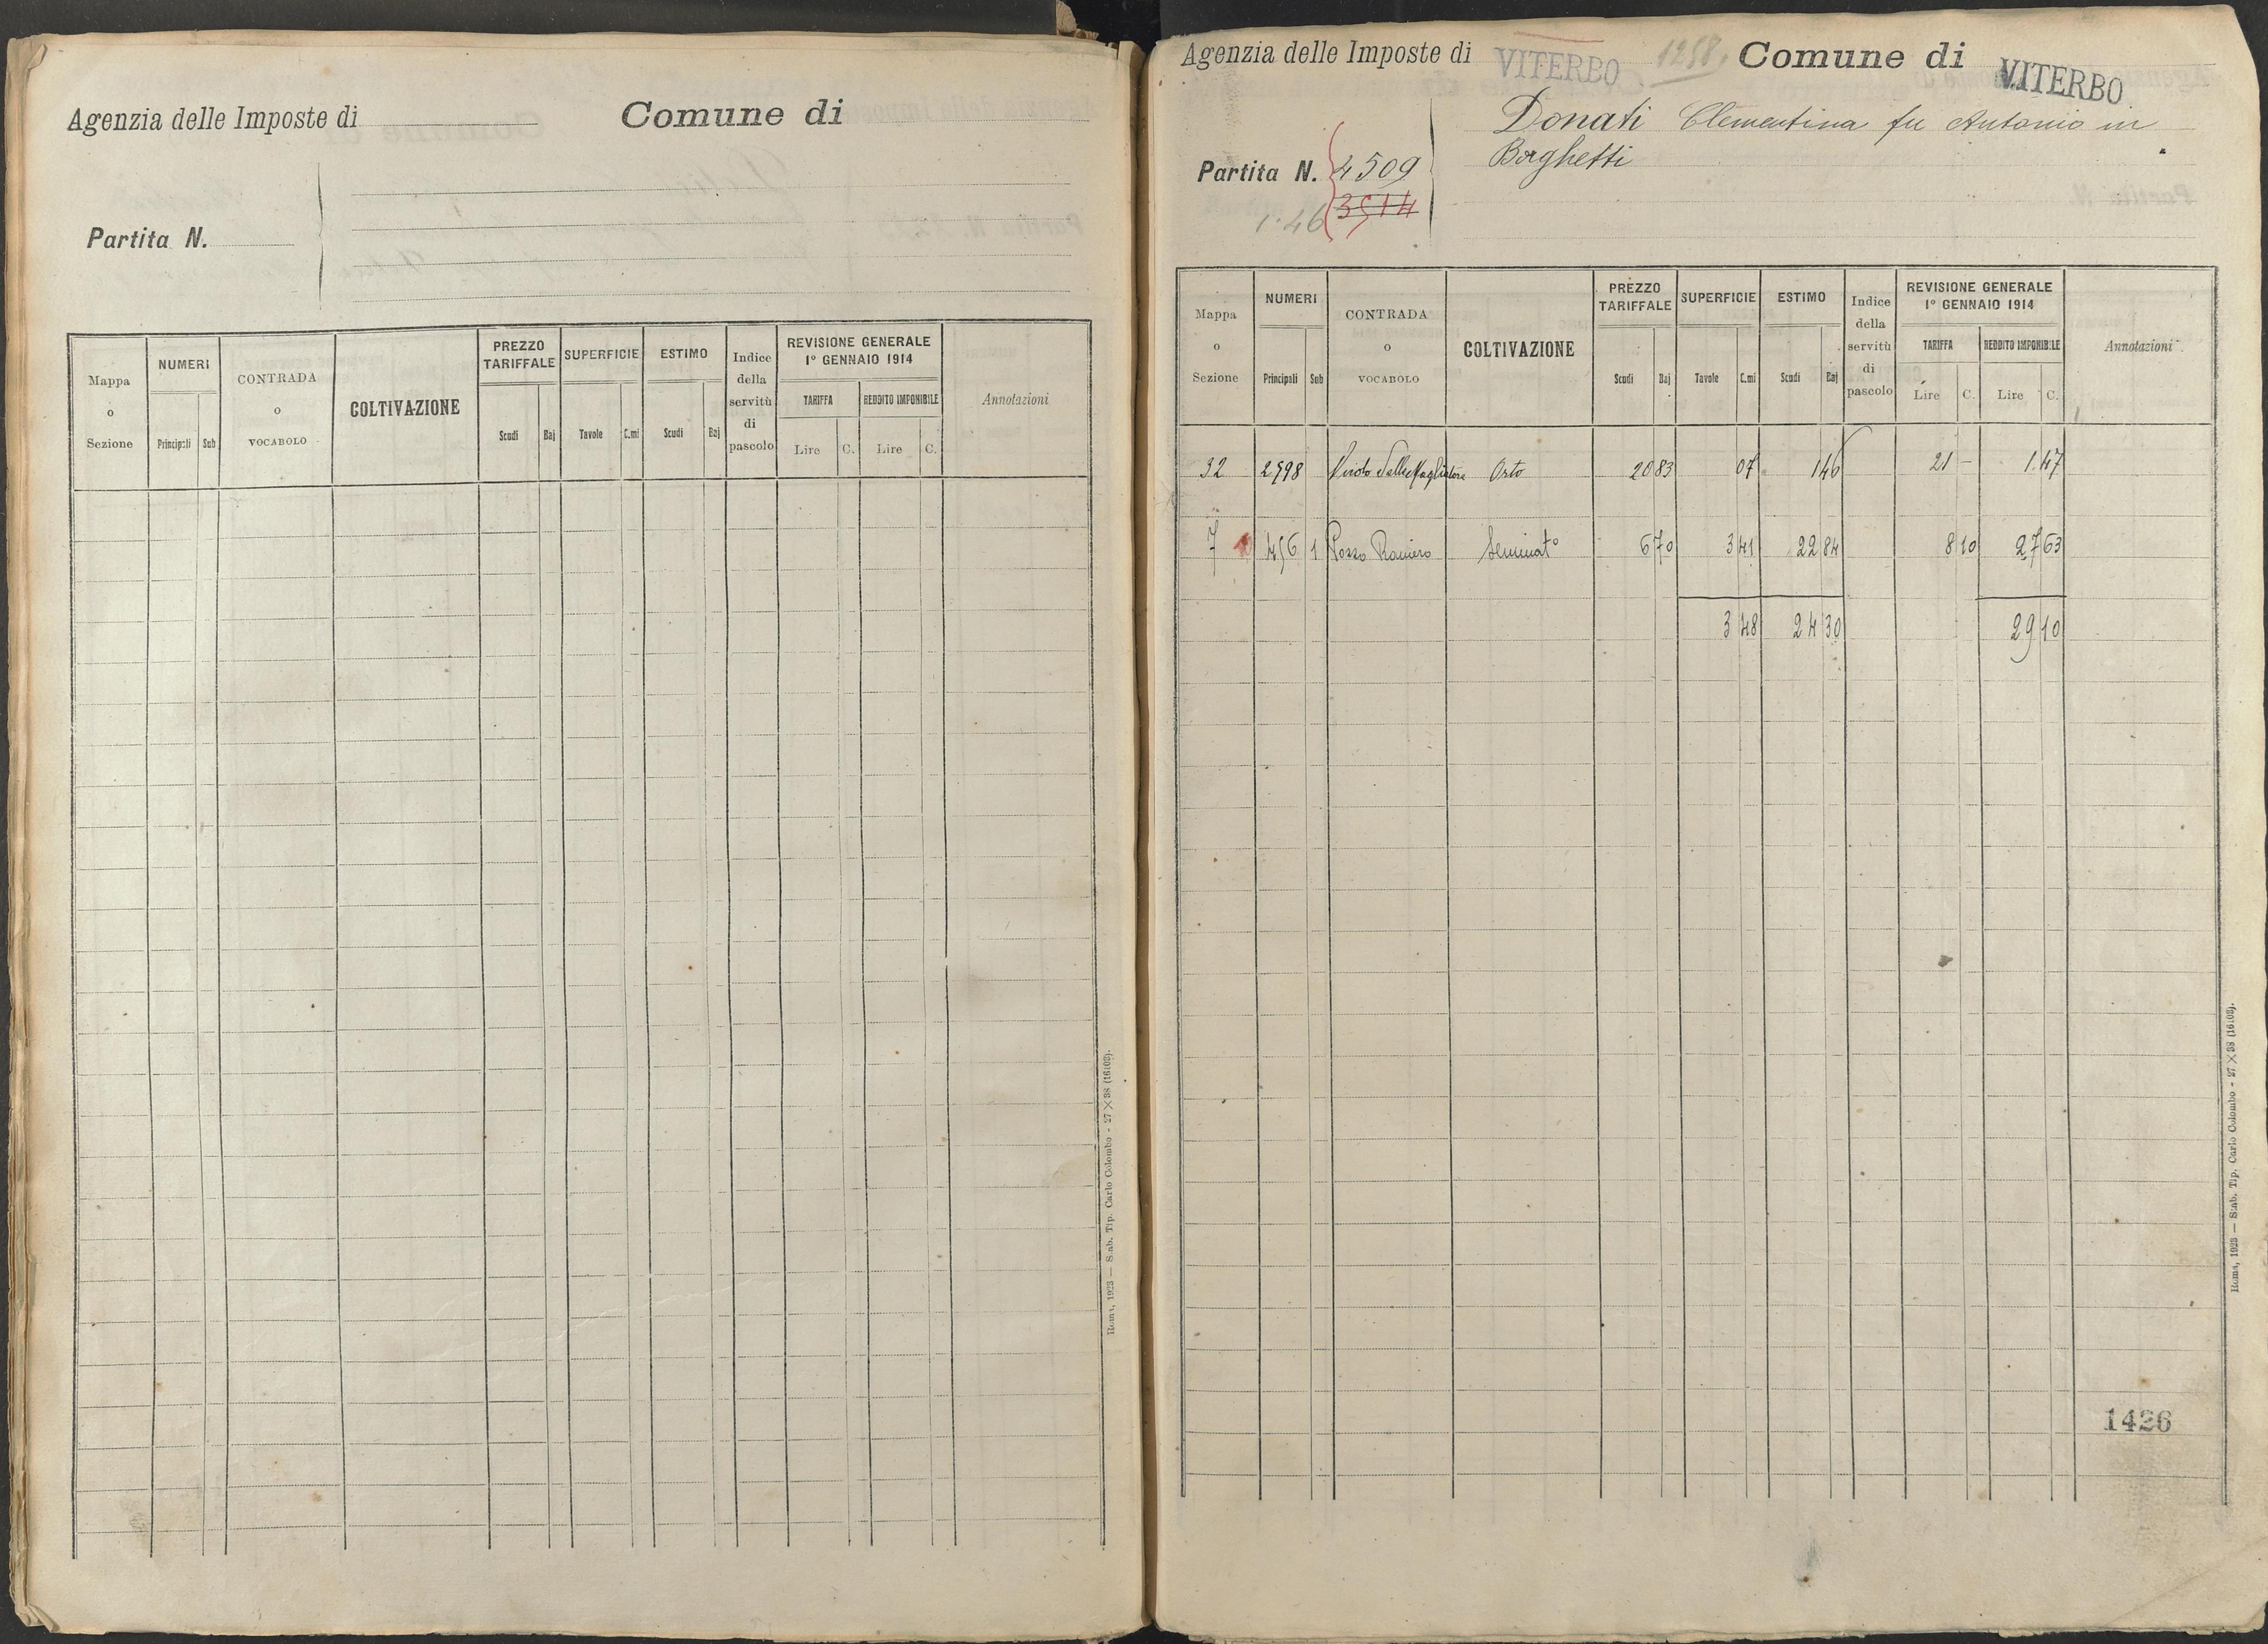 Agenzia delle Imposte di
Comune di
Partita N.
Mappa o Sezione
NUMERI
Principali Sub
CONTRADA o VOCABOLO
COLTIVAZIONE
PREZZO TARIFFALE
Scudi Baj
SUPERFICIE
Tavole C.mi
ESTIMO
Scudi Baj
Indice della servitù di pascolo
REVISIONE GENERALE 1° GENNAIO 1914
TARIFFA
Lire C.
REDDITO IMPONIBILE
Lire C.
Annotazioni
Roma, 1923 — Stab. Tip. Carlo Colombo - 27 × 38 (16103).
Agenzia delle Imposte di VITERBO 1258. Comune di VITERBO
Donati Clementina fu Antonio in
Borghetti
Partita N. 4509
1·46 3514
Mappa o Sezione
NUMERI
Principali Sub
CONTRADA o VOCABOLO
COLTIVAZIONE
PREZZO TARIFFALE
Scudi Baj
SUPERFICIE
Tavole C.mi
ESTIMO
Scudi Baj
Indice della servitù di pascolo
REVISIONE GENERALE 1° GENNAIO 1914
TARIFFA
Lire C.
REDDITO IMPONIBILE
Lire C.
Annotazioni
32 2598 Orto 20 83 07 1 46 21 — 1 47
7 456 1 Pozzo Raniero Seminato 6 70 3 41 22 84 8 10 27 63
3 48 24 30 29 10
1426
Roma, 1923 — Stab. Tip. Carlo Colombo - 27 × 38 (16103).